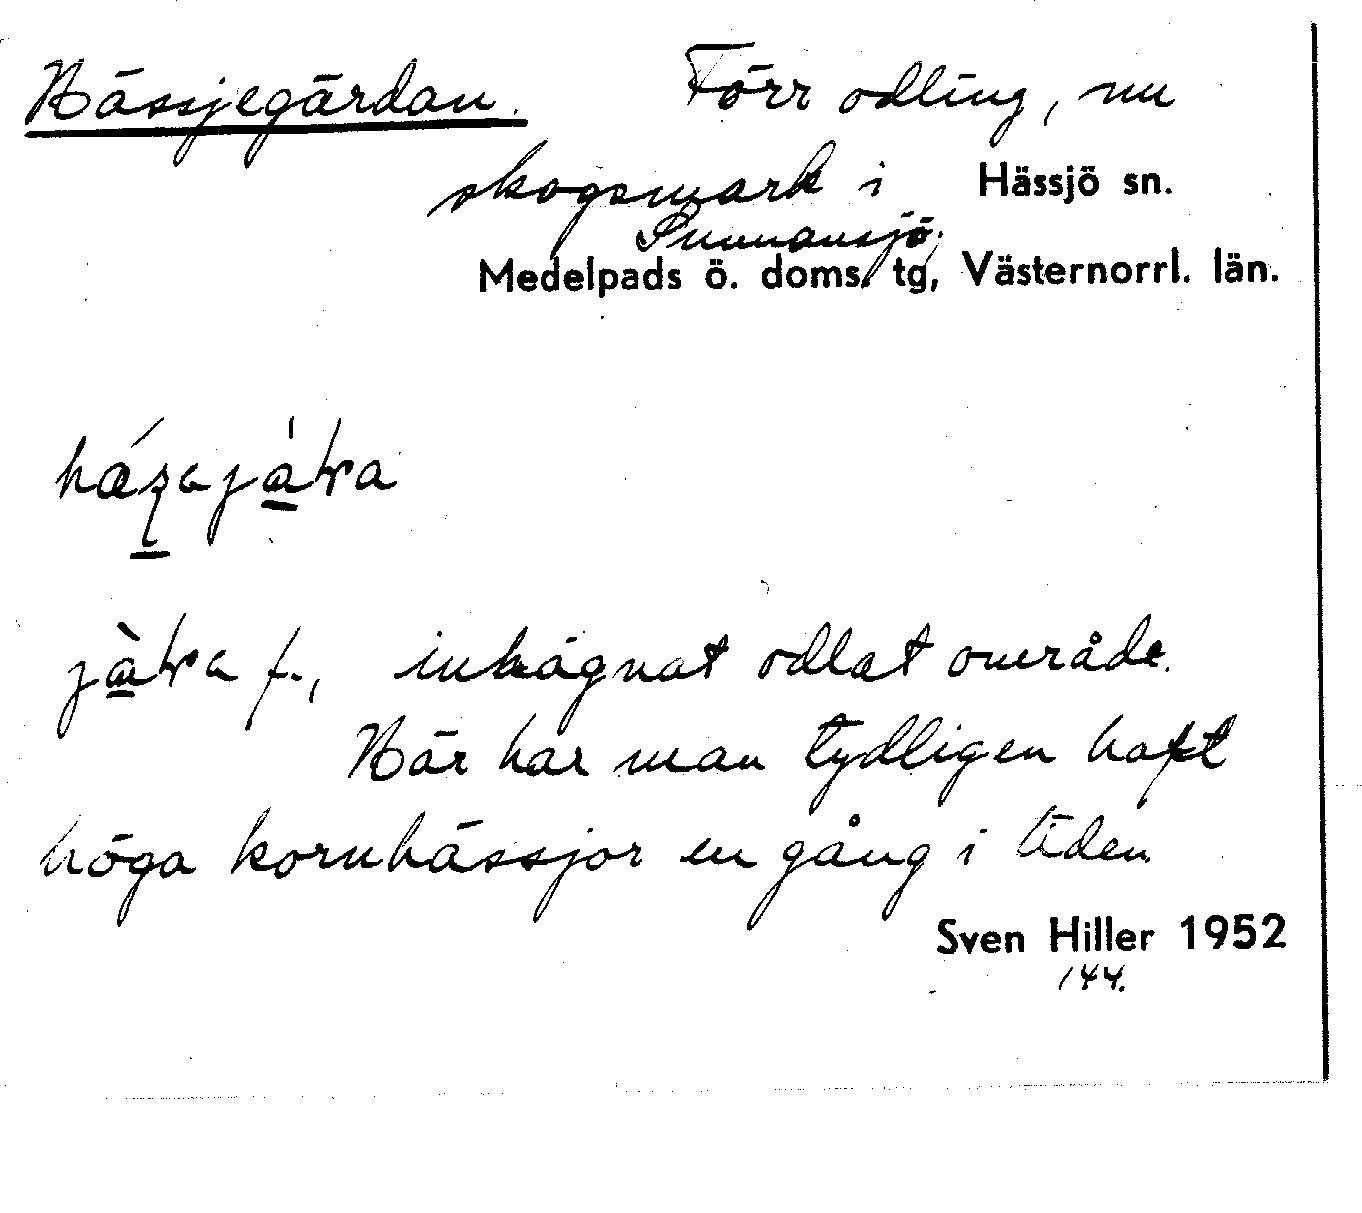 Hässjegärdan. Förr odling, nu
skogsmark i Hässjö sn.
Sunnansjö,
Medelpads ö. doms. tg, Västernorrl. län.
f., inhägnat odlat område.
Här har man tydligen haft
höga kornhässjor en gång i tiden
Sven Hiller 1952
144.